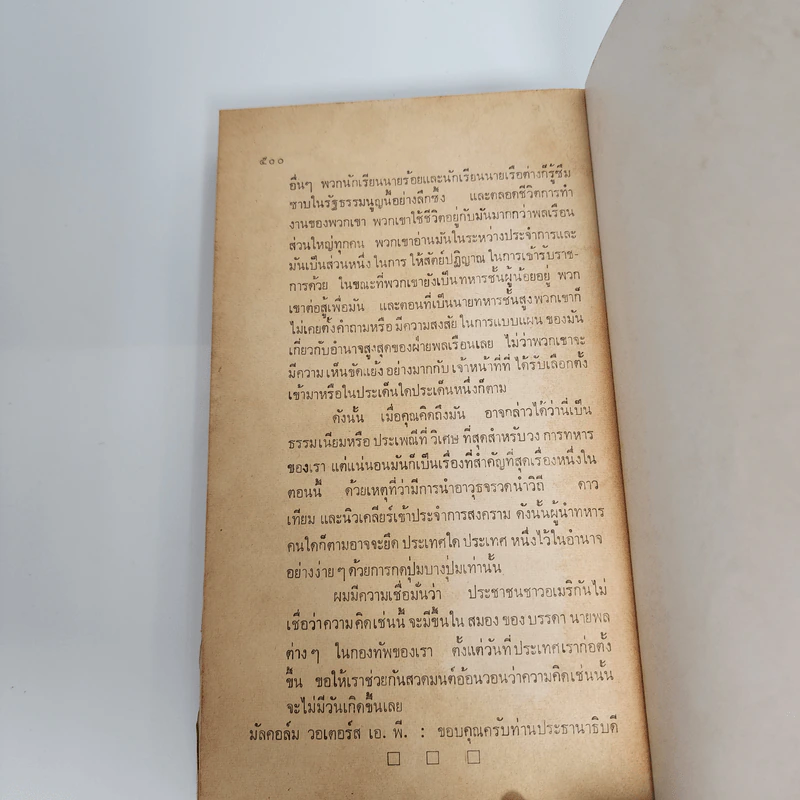 ๕๐๐
อื่นๆ พวกนักเรียนนายร้อยและนักเรียนนายเรือต่างก็รู้ซึม
ซาบในรัฐธรรมนูญนี้อย่างลึกซึ้ง และตลอดชีวิตการทำ
งานของพวกเขา พวกเขาใช้ชีวิตอยู่กับมันมากกว่าพลเรือน
ส่วนใหญ่ทุกคน พวกเขาอ่านมันในระหว่างประจำการและ
มันเป็นส่วนหนึ่ง ในการ ให้สัตย์ปฏิญาณ ในการเข้ารับราช-
การด้วย ในขณะที่พวกเขายังเป็นทหารชั้นผู้น้อยอยู่ พวก
เขาต่อสู้เพื่อมัน และตอนที่เป็นนายทหารชั้นสูงพวกเขาก็
ไม่เคยตั้งคำถามหรือ มีความสงสัย ในการแบบแผน ของมัน
เกี่ยวกับอำนาจสูงสุดของฝ่ายพลเรือนเลย ไม่ว่าพวกเขาจะ
มีความ เห็นขัดแย้ง อย่างมากกับ เจ้าหน้าที่ที่ ได้รับเลือกตั้ง
เข้ามาหรือในประเด็นใดประเด็นหนึ่งก็ตาม
ดังนั้น เมื่อคุณคิดถึงมัน อาจกล่าวได้ว่านี่เป็น
ธรรมเนียมหรือ ประเพณีที่ วิเศษ ที่สุดสำหรับวง การทหาร
ของเรา แต่แน่นอนมันก็เป็นเรื่องที่สำคัญที่สุดเรื่องหนึ่งใน
ตอนนี้ ด้วยเหตุที่ว่ามีการนำอาวุธจรวดนำวิถี ดาว
เทียม และนิวเคลียร์เข้าประจำการสงคราม ดังนั้นผู้นำทหาร
คนใดก็ตามอาจจะยึด ประเทศใด ประเทศ หนึ่งไว้ในอำนาจ
อย่างง่าย ๆ ด้วยการกดปุ่มบางปุ่มเท่านั้น
ผมมีความเชื่อมั่นว่า ประชาชนชาวอเมริกันไม่
เชื่อว่าความคิดเช่นนี้ จะมีขึ้นใน สมอง ของ บรรดา นายพล
ต่าง ๆ ในกองทัพของเรา ตั้งแต่วันที่ประเทศเราก่อตั้ง
ขึ้น ขอให้เราช่วยกันสวดมนต์อ้อนวอนว่าความคิดเช่นนั้น
จะไม่มีวันเกิดขึ้นเลย
มัลคอล์ม วอเตอร์ส เอ. พี. : ขอบคุณครับท่านประธานาธิบดี